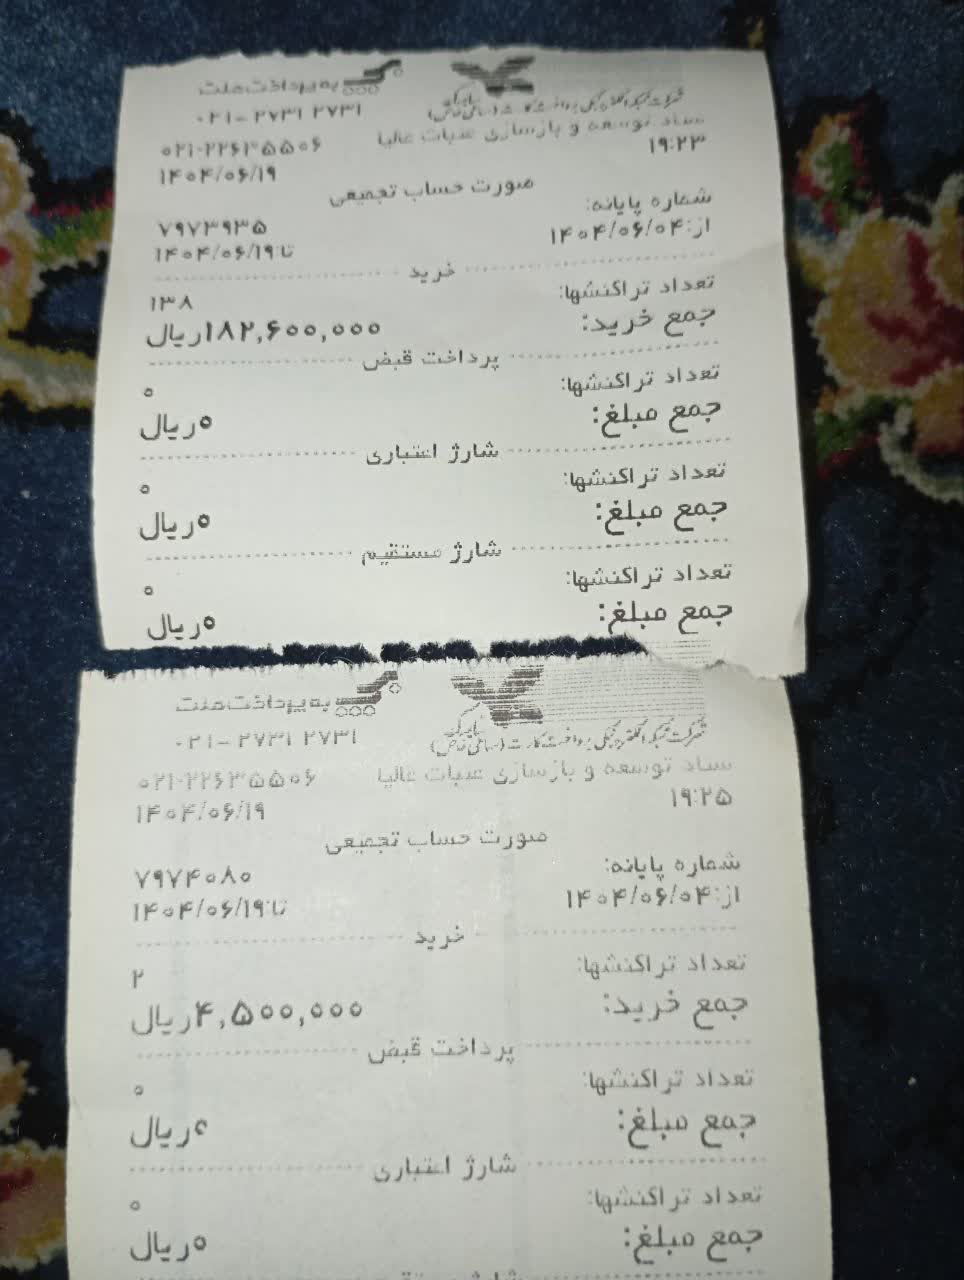 به پرداخت ملت
۰۲۱-۲۷۳۱ ۲۷۳۱
شرکت شبکه الکترونیکی پرداخت کارت (سهامی خاص)
ستاد توسعه و بازسازی عتبات عالیا
۰۲۱-۲۲۶۳۵۵۰۶
۱۹:۲۳
۱۴۰۴/۰۶/۱۹
صورت حساب تجمیعی
شماره پایانه: ۷۹۷۳۹۳۵
از:۱۴۰۴/۰۶/۰۴ تا:۱۴۰۴/۰۶/۱۹
خرید
تعداد تراکنشها: ۱۳۸
جمع خرید: ۱۸۲,۶۰۰,۰۰۰ریال
پرداخت قبض
تعداد تراکنشها: ۰
جمع مبلغ: ۰ریال
شارژ اعتباری
تعداد تراکنشها: ۰
جمع مبلغ: ۰ریال
شارژ مستقیم
تعداد تراکنشها: ۰
جمع مبلغ: ۰ریال
به پرداخت ملت
۰۲۱-۲۷۳۱ ۲۷۳۱
شرکت شبکه الکترونیکی پرداخت کارت (سهامی خاص)
ستاد توسعه و بازسازی عتبات عالیا
۰۲۱-۲۲۶۳۵۵۰۶
۱۹:۲۵
۱۴۰۴/۰۶/۱۹
صورت حساب تجمیعی
شماره پایانه: ۷۹۷۴۰۸۰
از:۱۴۰۴/۰۶/۰۴ تا:۱۴۰۴/۰۶/۱۹
خرید
تعداد تراکنشها: ۲
جمع خرید: ۴,۵۰۰,۰۰۰ریال
پرداخت قبض
تعداد تراکنشها: ۰
جمع مبلغ: ۰ریال
شارژ اعتباری
تعداد تراکنشها: ۰
جمع مبلغ: ۰ریال